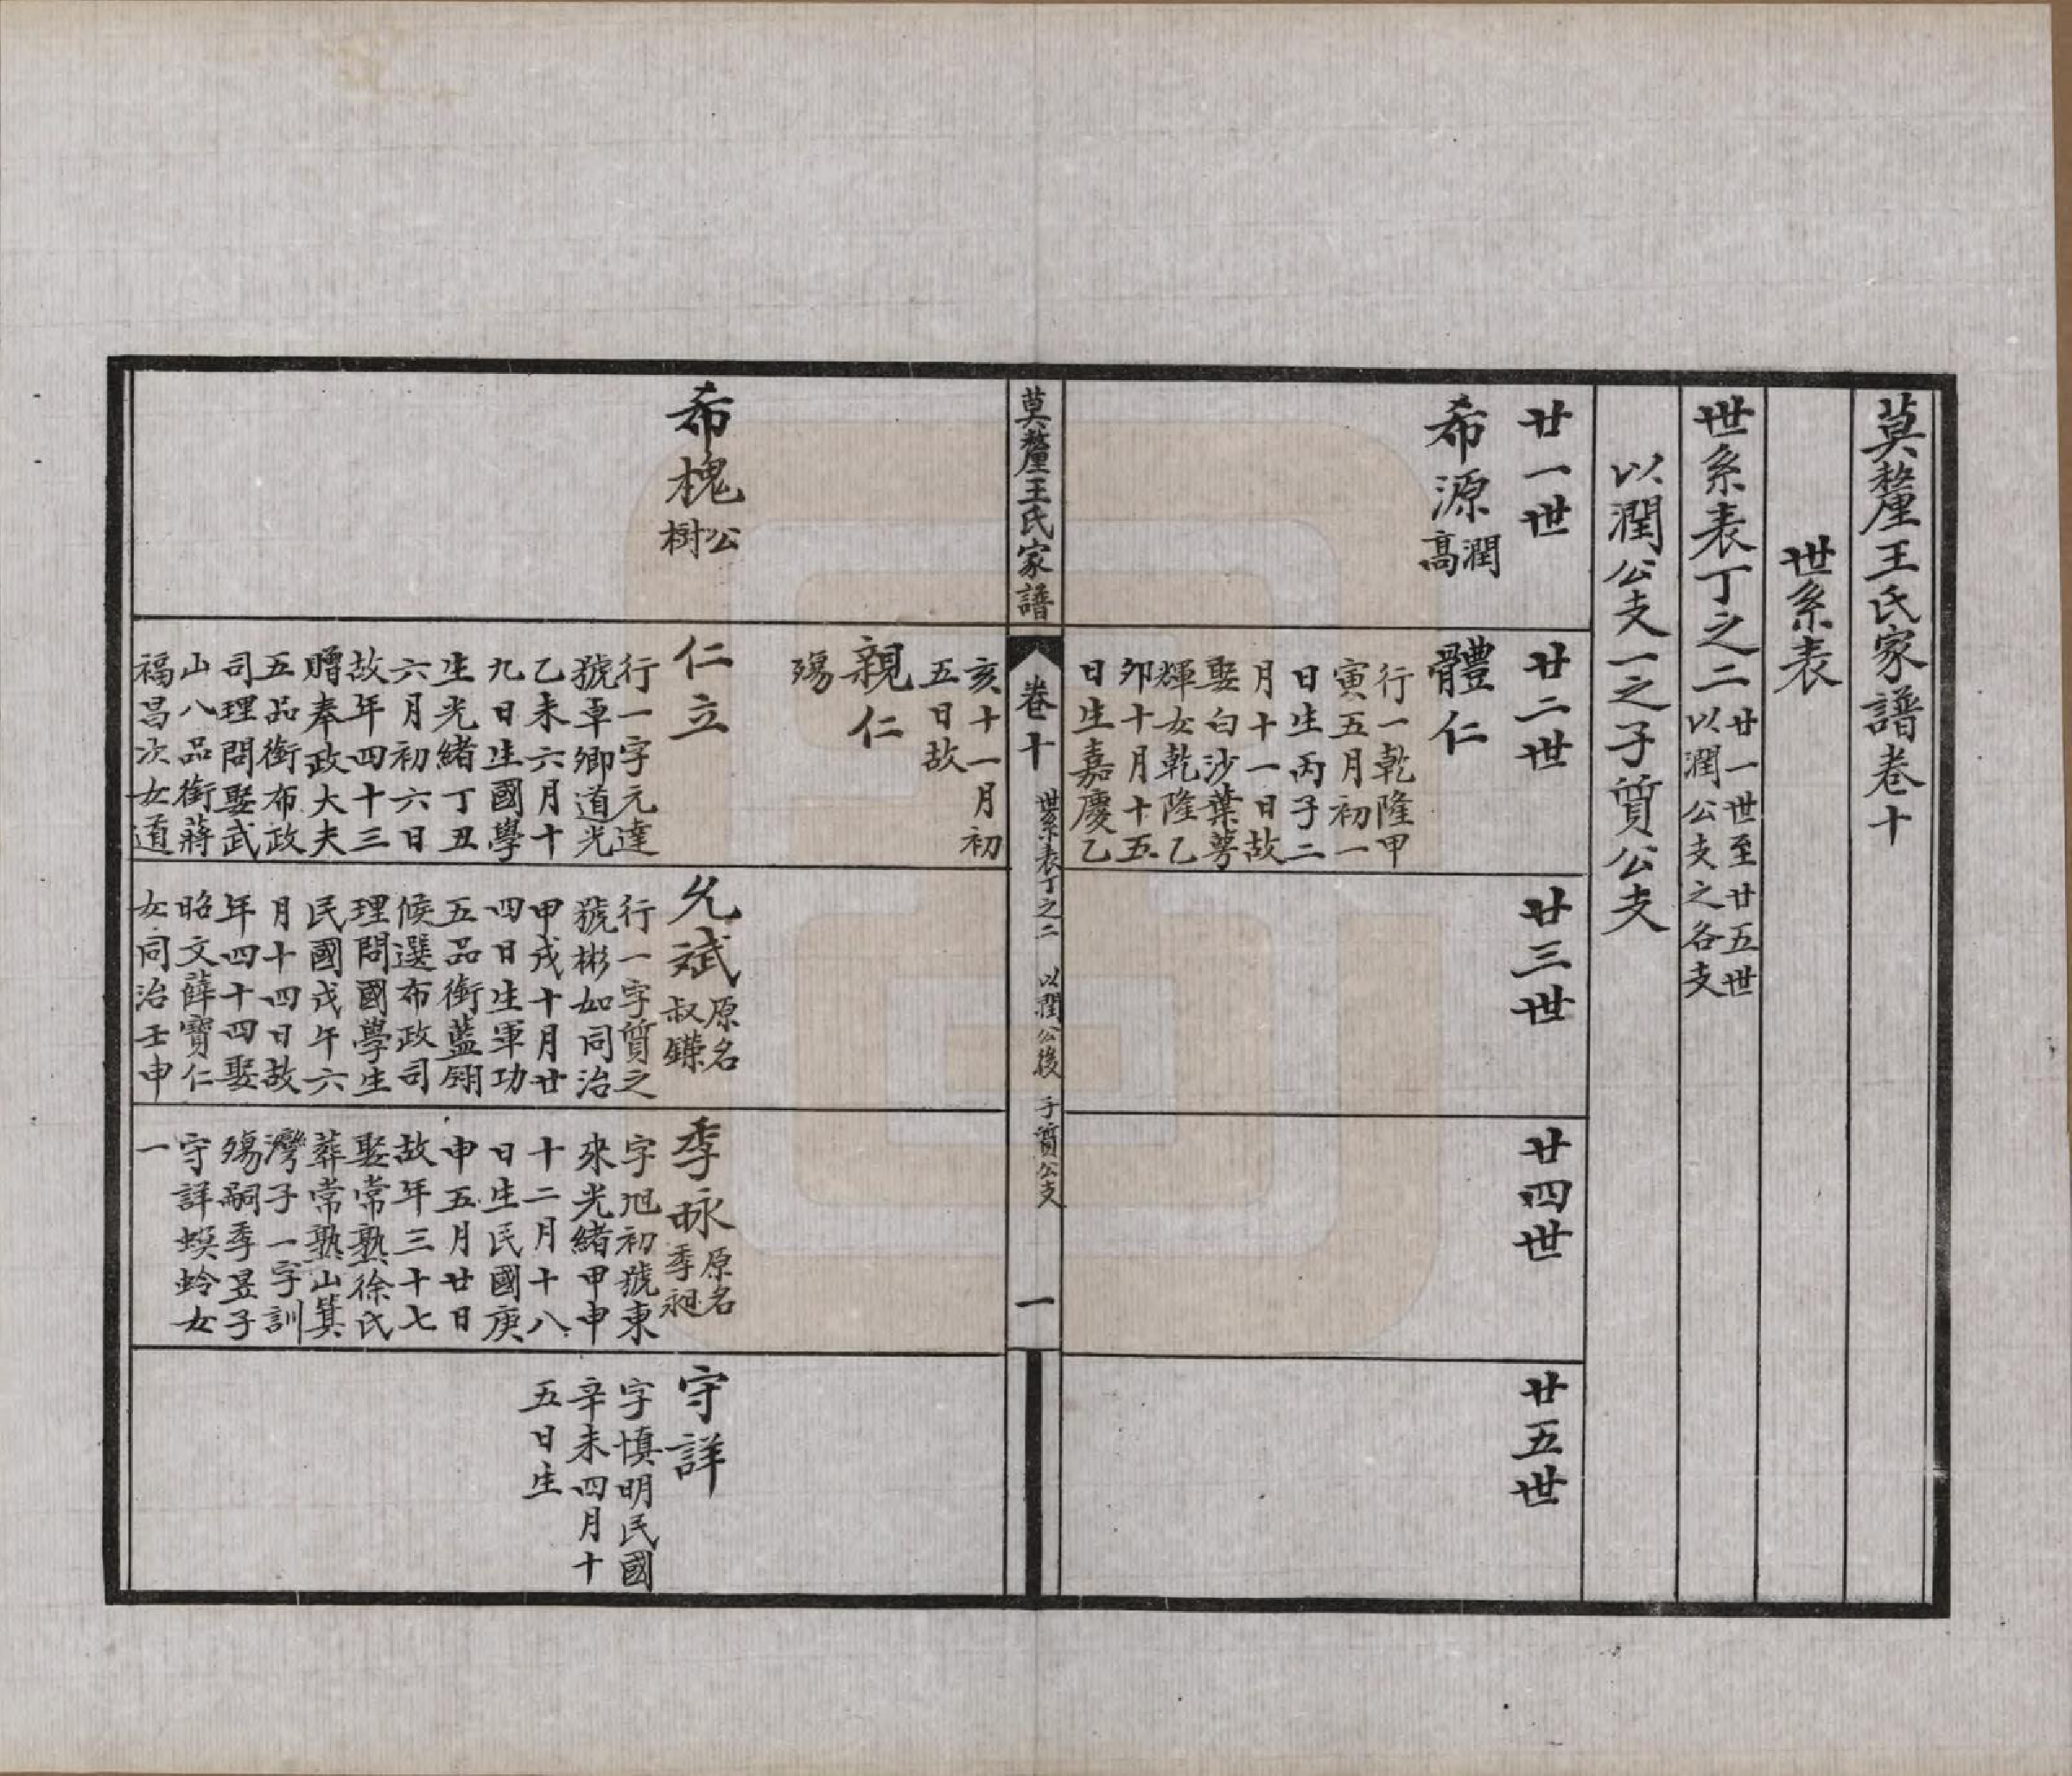 莫釐王氏家譜卷十
世系表
世系表丁之二
廿一世至廿五世
以潤公支之各支
以潤公支一之子質公支
廿一世
廿二世
廿三世
廿四世
廿五世
希源
潤
高
體仁
行一乾隆甲
寅五月初一
日生丙子二
月十一日故
娶白沙葉蕚
輝女乾隆乙
卯十月十五
日生嘉慶乙
莫釐王氏家譜
卷十
世系表丁之二
以潤公後
子質公支
一
亥十一月初
五日故
親仁
殤
希槐
公
樹
仁立
行一字元達
號車卿道光
乙未六月十
九日生國學
生光緒丁丑
六月初六日
故年四十三
贈奉政大夫
五品銜布政
司理問娶武
山八品銜蔣
福昌次女道
允斌
原名
叔鑅
行一字質之
號彬如同治
甲戌十月廿
四日生軍功
五品銜藍翎
候選布政司
理問國學生
民國戊午六
月十四日故
年四十四娶
昭文薛寶仁
女同治壬申
季詠
原名
季昶
字旭初號東
來光緒甲申
十二月十八
日生民國庚
申五月廿日
故年三十七
娶常熟徐氏
葬常熟山箕
灣子一字訓
殤嗣季昱子
守詳螟蛉女
一
守詳
字慎明民國
辛未四月十
五日生